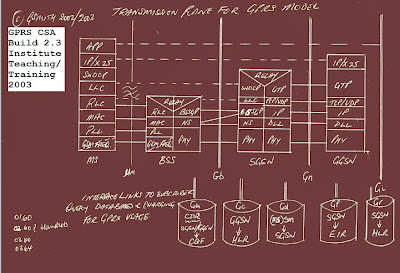 (C) GSMUTH 2002/2003
TRANSMISSION PLANE FOR GPRS MODEL
GPRS CSA
Build 2.3
Institute
Teaching/
Training
2003
APP
IP/X.25
SNDCP
LLC
RLC
MAC
PLL
GSM RF
MS
Um
RELAY
RLC BSSGP
MAC NS
PLL
GSM RF PHY
BSS
Gb
RELAY
SNDCP GTP
LLC TCP/UDP
BSSGP IP
NS DLL
PHY PHY
SGSN
Gn
IP/X.25
GTP
TCP/UDP
IP
DLL
PHY
GGSN
Gi
INTERFACE LINKS TO SUBSCRIBER
QUERY DATABASES & CHARGING
FOR GPRS USAGE
Ga
CDR
SGSN/GGSN
CGF
Gc
GGSN
HLR
Gd
SGSN
Gf
SGSN
EIR
Gr
SGSN
HLR